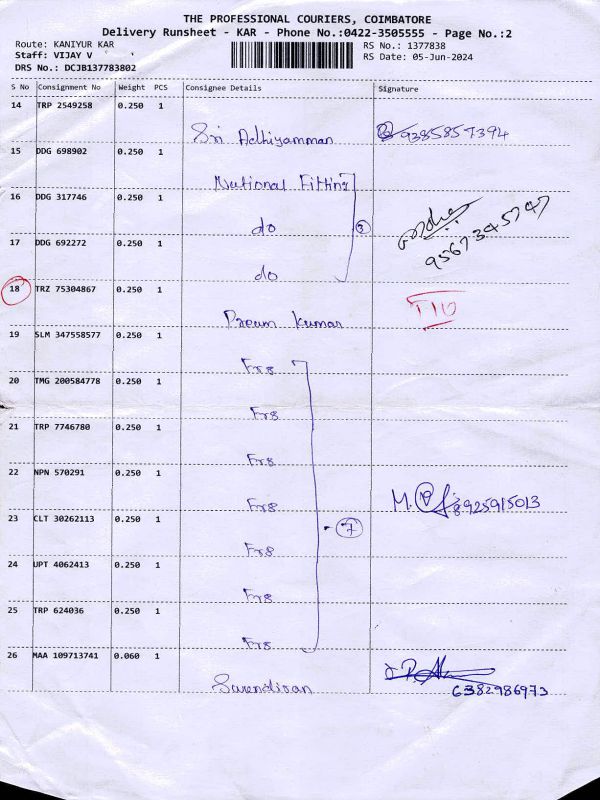 THE PROFESSIONAL COURIERS, COIMBATORE
Delivery Runsheet - KAR - Phone No.:0422-3505555 - Page No.:2
Route: KANIYUR KAR RS No.: 1377838
Staff: VIJAY V RS Date: 05-Jun-2024
DRS No.: DCJB137783802
S No Consignment No Weight PCS Consignee Details Signature
14 TRP 2549258 0.250 1
Sri Adhiyamman 9385857394
15 DDG 698902 0.250 1
National Fitting
16 DDG 317746 0.250 1
do 3
9567345747
17 DDG 692272 0.250 1
do
18 TRZ 75304867 0.250 1
Preum kumar
19 SLM 347558577 0.250 1
Fr8
20 TMG 200584778 0.250 1
Fr8
21 TRP 7746780 0.250 1
Fr8
22 NPN 570291 0.250 1
Fr8 8925915013
23 CLT 30262113 0.250 1
7
Fr8
24 UPT 4062413 0.250 1
Fr8
25 TRP 624036 0.250 1
Fr8
26 MAA 109713741 0.060 1
6382986973